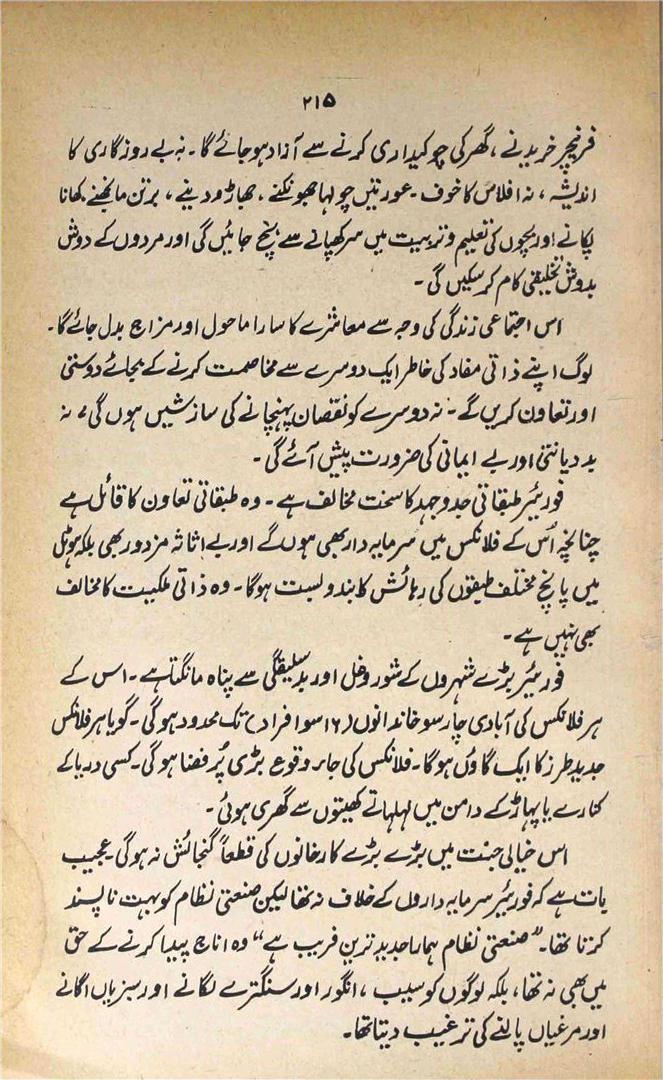 ۲۱۵
فرنیچر خریدنے، گھر کی چوکیداری کرنے سے آزاد ہو جائے گا۔ نہ بے روزگاری کا
اندیشہ، نہ افلاس کا خوف۔ عورتیں چولہا جھونکنے، جھاڑو دینے، برتن مانجھنے، کھانا
پکانے اور بچوں کی تعلیم و تربیت میں سر کھپانے سے بچ جائیں گی اور مردوں کے دوش
بدوش تخلیقی کام کر سکیں گی۔
اس اجتماعی زندگی کی وجہ سے معاشرے کا سارا ماحول اور مزاج بدل جائے گا۔
لوگ اپنے ذاتی مفاد کی خاطر ایک دوسرے سے مخاصمت کرنے کے بجائے دوستی
اور تعاون کریں گے۔ نہ دوسرے کو نقصان پہنچانے کی سازشیں ہوں گی، نہ
بددیانتی اور بے ایمانی کی ضرورت پیش آئے گی۔
فورئیر طبقاتی جدوجہد کا سخت مخالف ہے۔ وہ طبقاتی تعاون کا قائل ہے
چنانچہ اُس کے فلانکس میں سرمایہ دار بھی ہوں گے اور بے اثاثہ مزدور بھی بلکہ ہوٹل
میں پانچ مختلف طبقوں کی رہائش کا بندوبست ہوگا۔ وہ ذاتی ملکیت کا مخالف
بھی نہیں ہے۔
فورئیر بڑے شہروں کے شور و غل اور بدسلیقگی سے پناہ مانگتا ہے۔ اس کے
ہر فلانکس کی آبادی چار سو خاندانوں (۱۶ سو افراد) تک محدود ہوگی۔ گویا ہر فلانکس
جدید طرز کا ایک گاؤں ہوگا۔ فلانکس کی جائے وقوع بڑی پُرفضا ہوگی۔ کسی دریا کے
کنارے یا پہاڑ کے دامن میں لہلہاتے کھیتوں سے گھری ہوئی۔
اس خیالی جنت میں بڑے بڑے کارخانوں کی قطعاً گنجائش نہ ہوگی۔ عجیب
بات ہے کہ فورئیر سرمایہ داروں کے خلاف نہ تھا لیکن صنعتی نظام کو بہت ناپسند
کرتا تھا۔ "صنعتی نظام ہمارا جدید ترین فریب ہے" وہ اناج پیدا کرنے کے حق
میں بھی نہ تھا، بلکہ لوگوں کو سیب، انگور اور سنگترے لگانے اور سبزیاں اگانے
اور مرغیاں پالنے کی ترغیب دیتا تھا۔